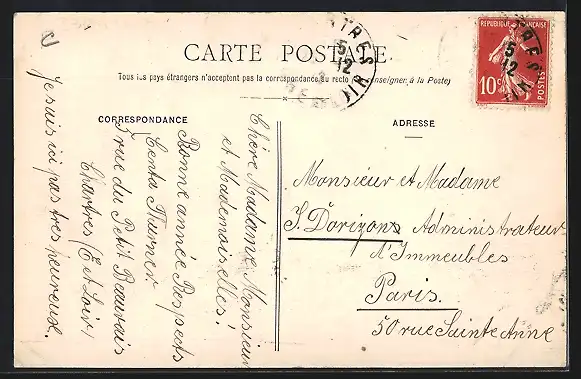 CARTE POSTALE
Tous les pays étrangers n'acceptent pas la correspondance au recto (Se renseigner à la Poste)
CORRESPONDANCE
ADRESSE
Chère Madame, Monsieur
et Mademoiselles!
Bonne année Respects
Centa Thurner
7 rue du Petit Beauvais
Chartres (E et Loir)
Je suis ici pas très heureuse.
Monsieur et Madame
J. Dorizon Administrateur
d'Immeubles
Paris.
50 rue Sainte Anne
10c
POSTES
5
12
5
12